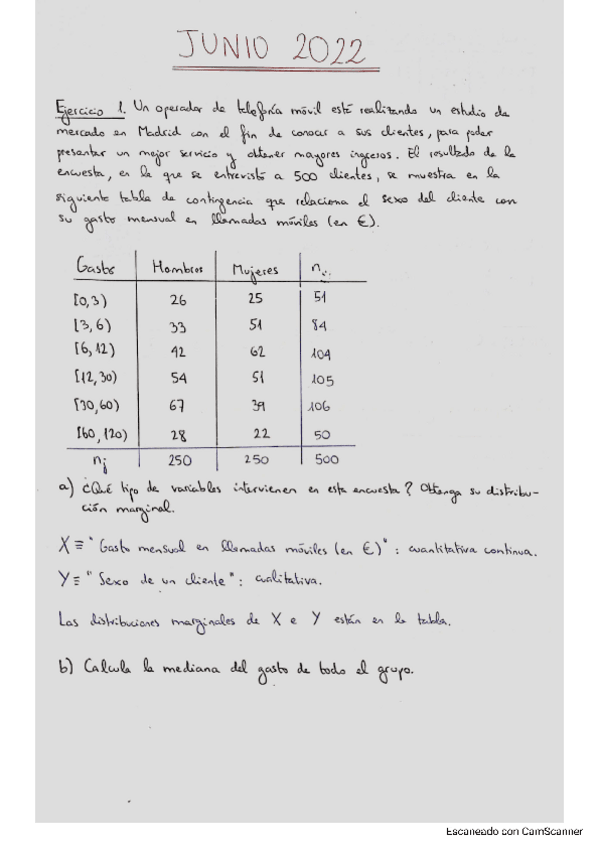 JUNIO 2022
Ejercicio 1. Un operador de telefonía móvil está realizando un estudio de
mercado en Madrid con el fin de conocer a sus clientes, para poder
presentar un mejor servicio y obtener mayores ingresos. El resultado de la
encuesta, en la que se entrevistó a 500 clientes, se muestra en la
siguiente tabla de contingencia que relaciona el sexo del cliente con
su gasto mensual en llamadas móviles (en €).
Gasto Hombres Mujeres ni.
[0,3) 26 25 51
[3,6) 33 51 84
[6,12) 42 62 104
[12,30) 54 51 105
[30,60) 67 39 106
[60,120) 28 22 50
nj 250 250 500
a) ¿Qué tipo de variables intervienen en esta encuesta? Obtenga su distribu-
ción marginal.
X ≡ "Gasto mensual en llamadas móviles (en €)": cuantitativa continua.
Y ≡ "Sexo de un cliente": cualitativa.
Las distribuciones marginales de X e Y están en la tabla.
b) Calcula la mediana del gasto de todo el grupo.
Escaneado con CamScanner